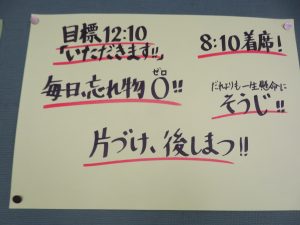 目標12:10
「いただきます!!」
8:10着席!
毎日、忘れ物0!!
ゼロ
だれよりも一生懸命に
そうじ!!
片づけ、後しまつ!!